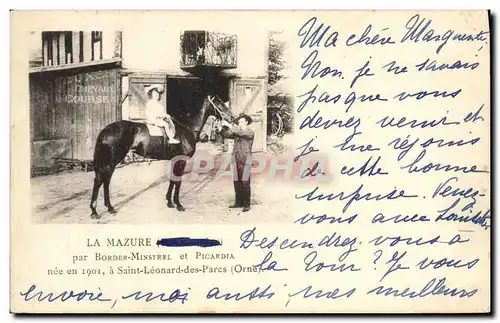 CHEVAUX
COURSE
LA MAZURE
par BORDER-MINSTREL et PICARDIA
née en 1901, à Saint-Léonard-des-Parcs (Orne)
Ma chère Marquente
Non, je ne savais
pas que vous
devrez venir et
je me réjouis
de cette bonne
surprise. Venez
vous avec Louis
Descendrez-vous à
la Tour? Je vous
envoie, moi aussi, mes meilleurs